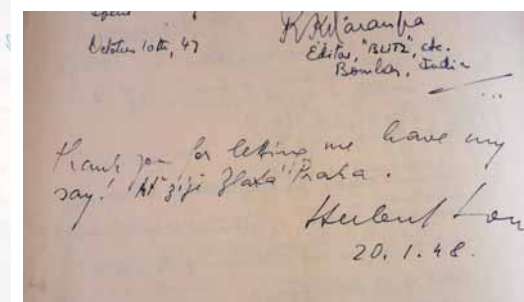 October 10th, 47
Editor, "BLITZ", etc.
Bombay, India
Thank you for letting me have my
say! Ať žije Zlatá Praha.
Herbert Lom
20. 1. 48.